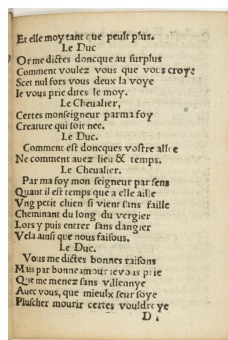 Et elle moy tant que peult plus.
Le Duc
Or me dictes doncque au surplus
Comment voulez vous que vous croye
Scet nul fors vous deux la voye
Ie vous prie dites le moy.
Le Cheualier,
Certes monseigneur par ma foy
Creature qui soit nee.
Le Duc.
Comment est doncques vostre allee
Ne comment auez lieu & temps.
Le Cheualier.
Par ma foy mon seigneur par sens
Quant il est temps que a elle aille
Vng petit chien si vient sans faille
Cheminant du long du vergier
Lors y puis entrer sans dangier
Vela ainsi que nous faisous.
Le Duc.
Vous me dictes bonnes raisons
Mais par bonne amour ie vous prie
Que me menez sans villennye
Auec vous, que mieulx seur soye
Pluscher mourir certes vouldroye
D